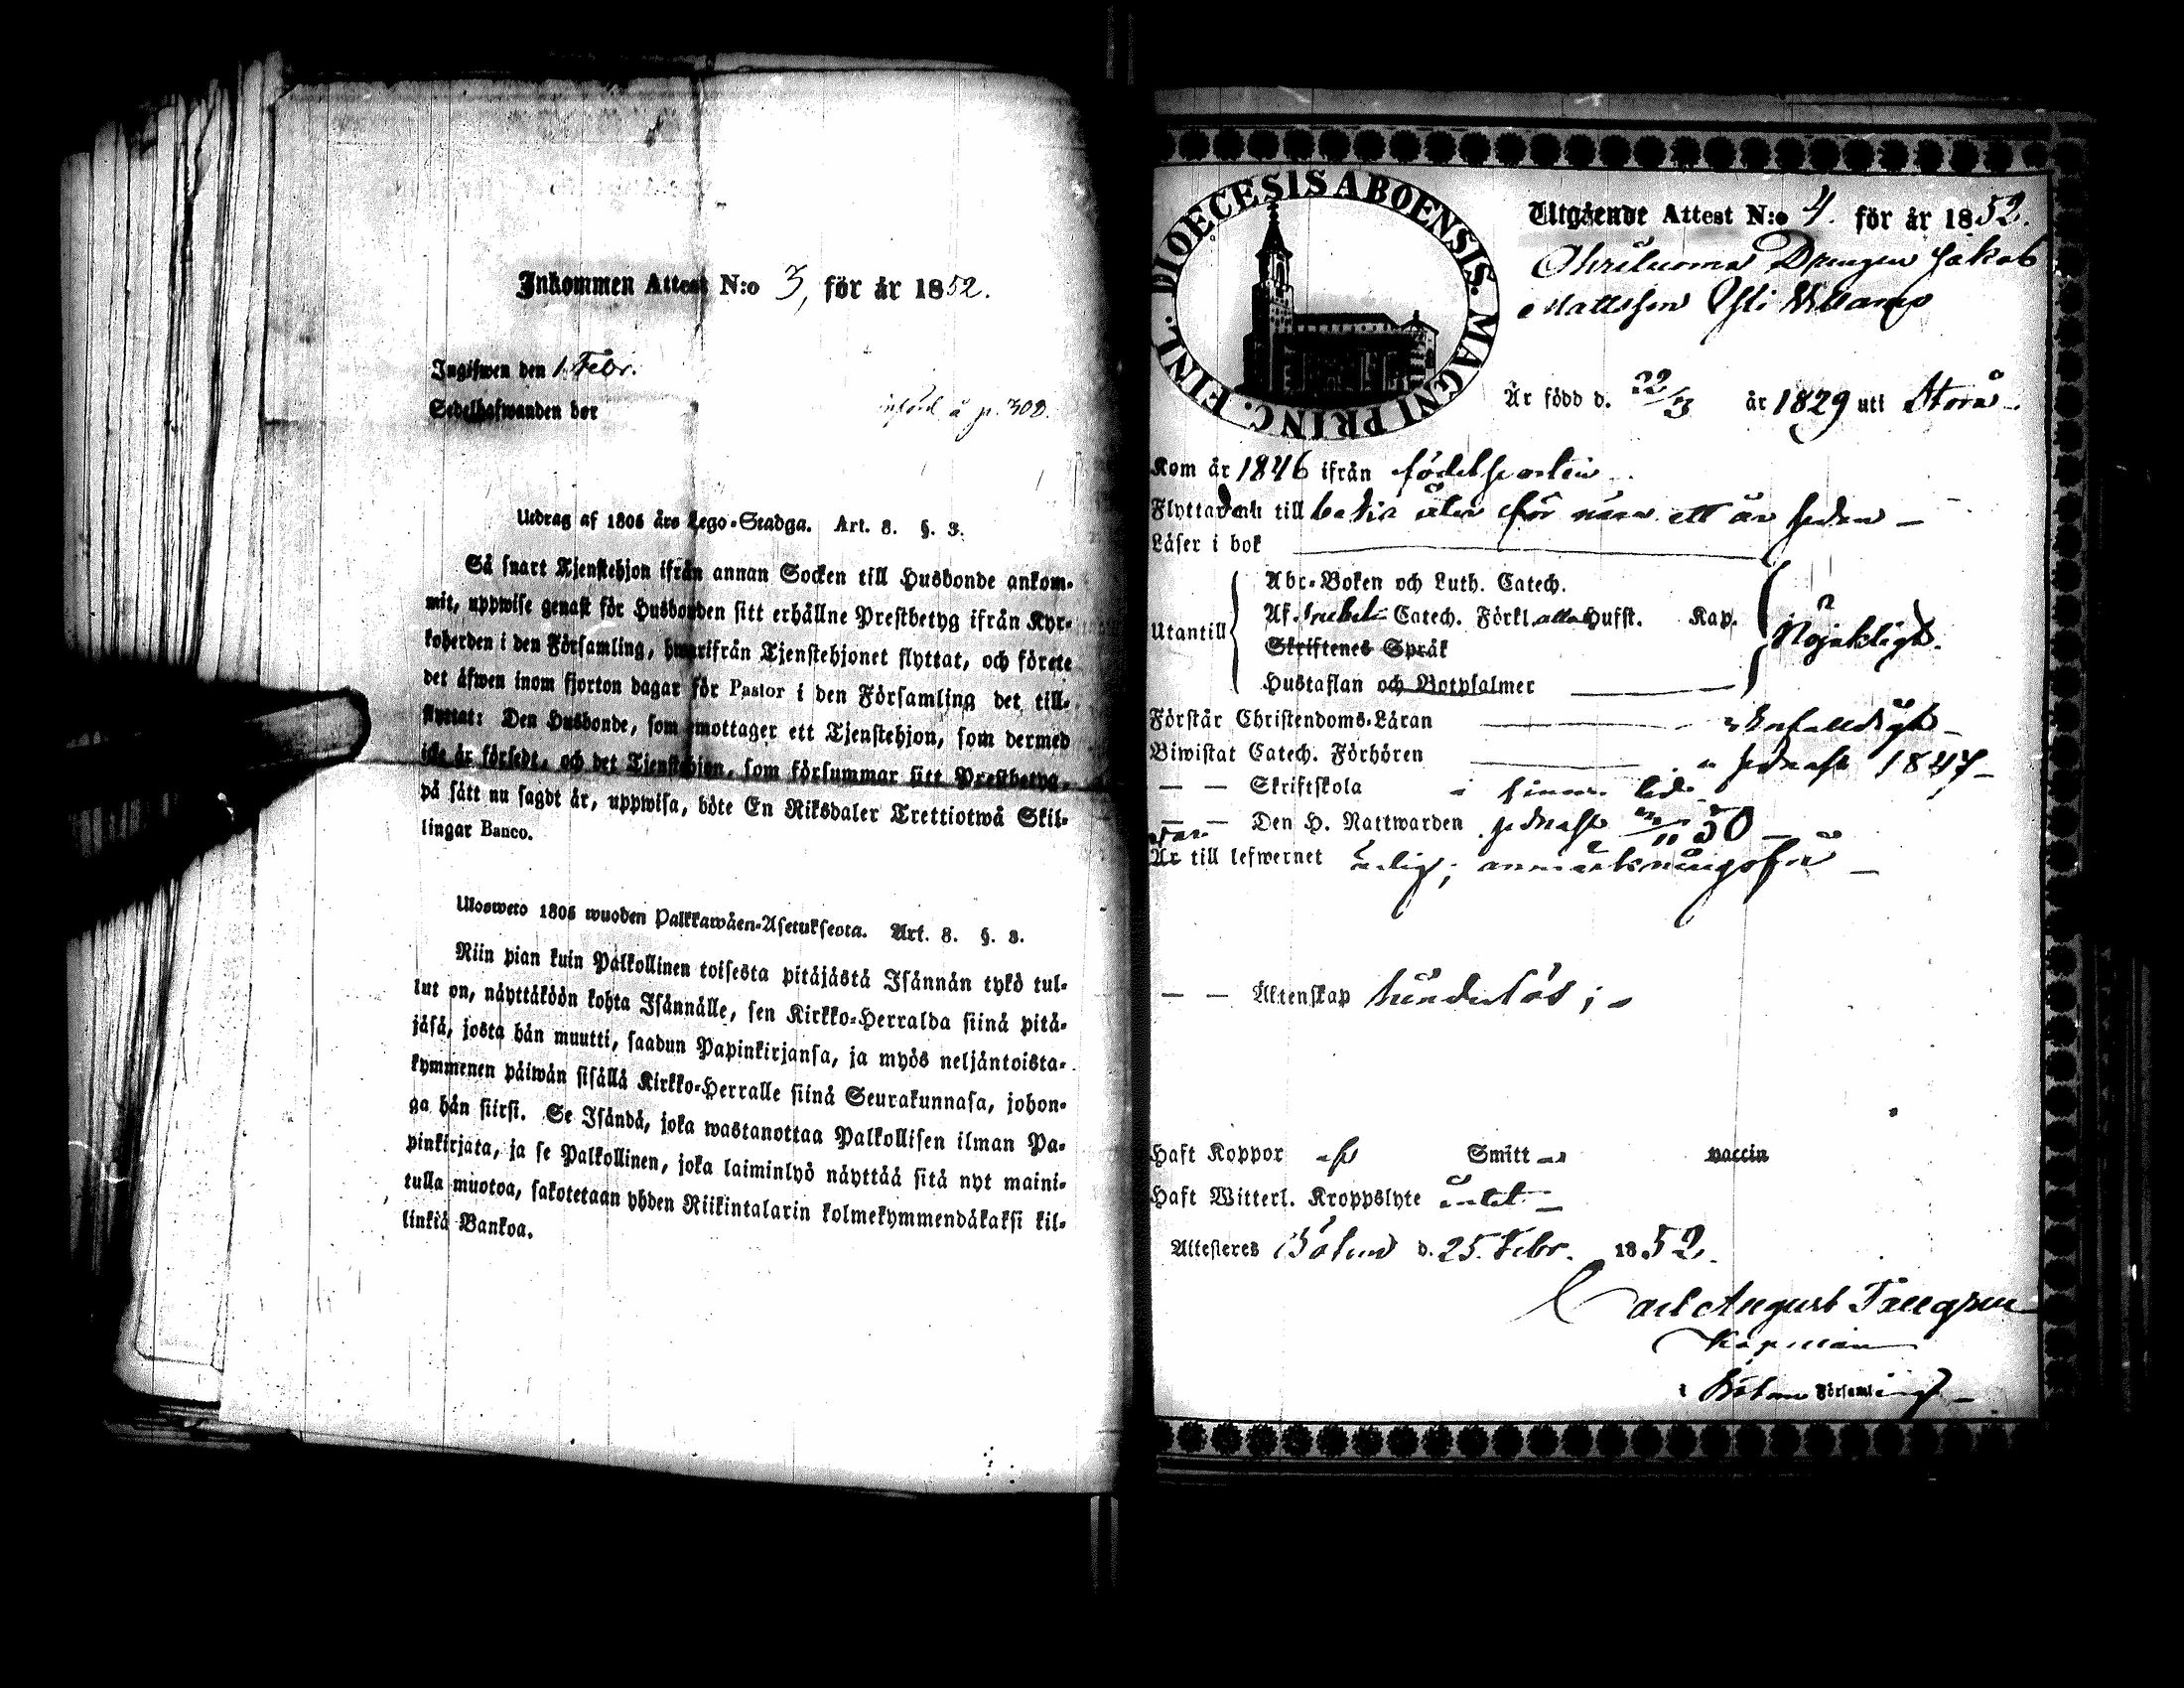 Inkommen Attest N:o 3, för år 1852.
Ingifwen den 1 Febr.
Sedelhafwanden bor
införd å p. 308.
Utdrag af 1805 års Lego-Stadga. Art. 8. §. 3.
Så snart Tjenstehjon ifrån annan Socken till Husbonde ankom-
mit, uppwise genast för Husbonden sitt erhållne Prestbetyg ifrån Kyr-
koherden i den Församling, hwarifrån Tjenstehjonet flyttat, och förete
det äfwen inom fjorton dagar för Pastor i den Församling det till-
flyttat: Den Husbonde, som emottager ett Tjenstehjon, som dermed
icke är försedt, och det Tjenstehjon, som försummar sitt Prestbetyg,
på sätt nu sagdt är, uppwisa, böte En Riksdaler Trettiotwå Skil-
lingar Banco.
Ulosweto 1805 wuoden Palkkawäen-Asetuksesta. Art. 8. §. 3.
Niin pian kuin Palkollinen toisesta pitäjästä Isännän tykö tul-
lut on, näyttäköön kohta Isännälle, sen Kirkko-Herralda siinä pitä-
jäsä, josta hän muutti, saadun Papinkirjansa, ja myös neljäntoista-
kymmenen päiwän sisällä Kirkko-Herralle siinä Seurakunnasa, johon-
ga hän siirsi. Se Isändä, joka wastanottaa Palkollisen ilman Pa-
pinkirjata, ja se Palkollinen, joka laiminlyö näyttää sitä nyt maini-
tulla muotoa, sakotetaan yhden Riikintalarin kolmekymmendäkaksi kil-
linkiä Bankoa.
DIOECESIS ABOENSIS. MAGNI PRINC. FINL.
Utgående Attest N:o 4. för år 1852.
Drengen Jakob
Mattsson
Är född d. 22/3 år 1829 uti Storå
Kom år 1846 ifrån födelseorten
Flyttade till för nära ett år sedan
Läser i bok
Utantill
Abc-Boken och Luth. Catech.
Af Catech. Förkl. alla Hufst. Kap.
Skriftenes Språk
Hustaflan och Botpsalmer
Nöjaktigt.
Förstår Christendoms-Läran
Biwistat Catech. Förhören sednast 1847
— — Skriftskola i sinom tid
— — Den H. Nattwarden sednast 50
Är till lefwernet ärlig; anmärkningsfri
— — Äktenskap hinderlös;
Haft Koppor Smitt vaccin
Haft Witterl. Kroppslyte intet
Attesteres Bötom d. 25. Febr. 1852.
Carl August
Kapellan
i Bötom Församling